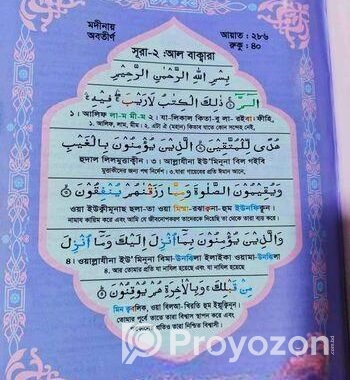 মদীনায়
অবতীর্ণ
আয়াত : ২৮৬
রুকু : ৪০
সূরা-২ :আল বাক্বারা
بِسْمِ اللّٰهِ الرَّحْمٰنِ الرَّحِيْمِ
الٓمّٓ ۚ ذٰلِكَ الْكِتٰبُ لَا رَيْبَ ۛ فِيْهِ ۛ
১। আলিফ লা-ম মী-ম ২। যা-লিকাল কিতা-বু লা- রইবা-ফীহি,
১। আলিফ, লাম, মীম। ২. এটা ঐ (মহান) কিতাব যাতে কোন সন্দেহ নেই,
هُدًى لِّلْمُتَّقِيْنَ الَّذِيْنَ يُؤْمِنُوْنَ بِالْغَيْبِ
হুদাল লিলমুত্তাক্বীন। ৩। আল্লাযীনা ইউ'মিনূনা বিল গইবি
মুত্তাকীদের জন্য পথ নির্দেশ। ৩.যারা গায়েবের প্রতি ঈমান আনে,
وَيُقِيْمُوْنَ الصَّلٰوةَ وَمِمَّا رَزَقْنٰهُمْ يُنْفِقُوْنَ
ওয়া ইউক্বীমূনাছ ছলা-তা ওয়া মিম্মা-রঝাক্বনা-হুম ইউনফিকূন।
নামায কায়িম করে এবং আমি যে জীবনোপকরণ তাদেরকে দিয়েছি তা থেকে তারা ব্যয় করে।
وَالَّذِيْنَ يُؤْمِنُوْنَ بِمَا اُنْزِلَ اِلَيْكَ وَمَا اُنْزِلَ
৪। ওয়াল্লাযীনা ইউ'মিনূনা বিমা-উনঝিলা ইলাইকা ওয়ামা-উনঝিলা
৪. আর তোমার প্রতি যা নাযিল হয়েছে এবং যা নাযিল হয়েছে
مِنْ قَبْلِكَ ۚ وَبِالْاٰخِرَةِ هُمْ يُوْقِنُوْنَ
মিন ক্ববলিক, ওয়া বিলআ-খিরতি হুম ইয়ূক্বিনূন।
তোমার পূর্বে তাতে তারা বিশ্বাস স্থাপন করে এবং
পরকালে যতিও তারা নিশ্চিত বিশ্বাসী।
Proyozon